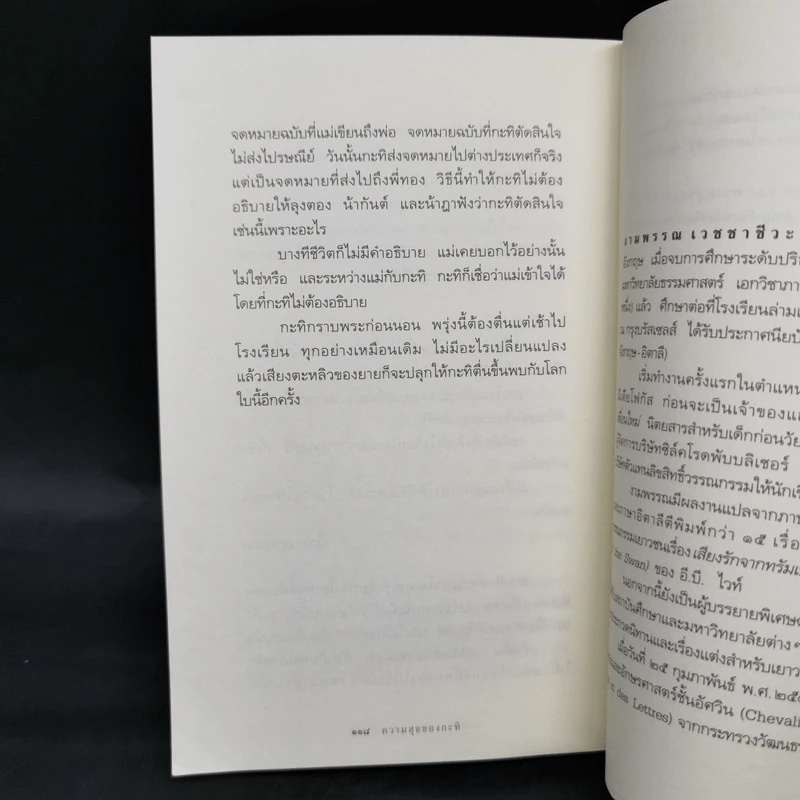 จดหมายฉบับที่แม่เขียนถึงพ่อ จดหมายฉบับที่กะทิตัดสินใจ
ไม่ส่งไปรษณีย์ วันนั้นกะทิส่งจดหมายไปต่างประเทศก็จริง
แต่เป็นจดหมายที่ส่งไปถึงพี่ทอง วิธีนี้ทำให้กะทิไม่ต้อง
อธิบายให้ลุงตอง น้ากันต์ และน้าฎาฟังว่ากะทิตัดสินใจ
เช่นนี้เพราะอะไร
บางทีชีวิตก็ไม่มีคำอธิบาย แม่เคยบอกไว้อย่างนั้น
ไม่ใช่หรือ และระหว่างแม่กับกะทิ กะทิก็เชื่อว่าแม่เข้าใจได้
โดยที่กะทิไม่ต้องอธิบาย
กะทิกราบพระก่อนนอน พรุ่งนี้ต้องตื่นแต่เช้าไป
โรงเรียน ทุกอย่างเหมือนเดิม ไม่มีอะไรเปลี่ยนแปลง
แล้วเสียงตะหลิวของยายก็จะปลุกให้กะทิตื่นขึ้นพบกับโลก
ใบนี้อีกครั้ง
๑๑๘ ความสุขของกะทิ
งามพรรณ เวชชาชีวะ
อังกฤษ เมื่อจบการศึกษาระดับปริ
มหาวิทยาลัยธรรมศาสตร์ เอกวิชาภา
หนึ่ง) แล้ว ศึกษาต่อที่โรงเรียนล่ามแ
ณ กรุงบรัสเซลส์ ได้รับประกาศนียบั
อังกฤษ-อิตาลี)
เริ่มทำงานครั้งแรกในตำแหน
มีเดียโฟกัส ก่อนจะเป็นเจ้าของแ
เพื่อนใหม่ นิตยสารสำหรับเด็กก่อนวัย
จัดการบริษัทซิล์คโรดพับบลิเชอร์
ตัวแทนลิขสิทธิ์วรรณกรรมให้นักเ
งามพรรณมีผลงานแปลจากภา
และภาษาอิตาลีตีพิมพ์กว่า ๑๕ เรื่อ
วรรณกรรมเยาวชนเรื่อง เสียงรักจากทรัมเ
Swan) ของ อี.บี. ไวท์
นอกจากนี้ยังเป็นผู้บรรยายพิเศษ
สถาบันศึกษาและมหาวิทยาลัยต่าง ๆ
ประกวดนิทานและเรื่องแต่งสำหรับเยาว
เมื่อวันที่ ๒๕ กุมภาพันธ์ พ.ศ. ๒๕
และอักษรศาสตร์ชั้นอัศวิน (Cheval
des Lettres) จากกระทรวงวัฒนธ